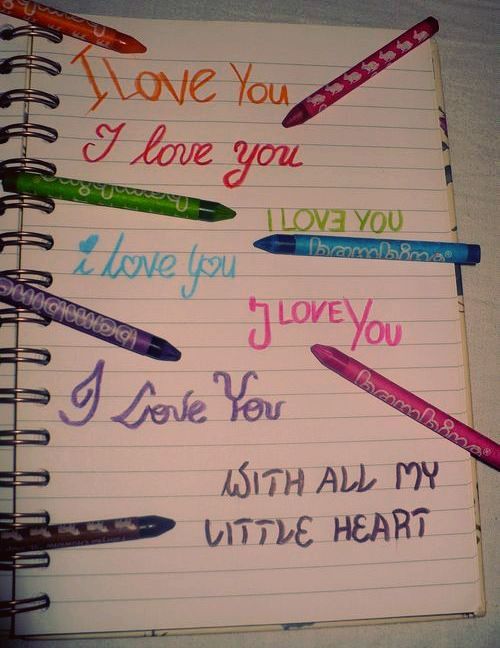 I LOVE YOU
I love you
bambino
I LOVE YOU
bambino®
i love you
bambino
I LOVE YOU
bambino®
I Love You
WITH ALL MY
LITTLE HEART